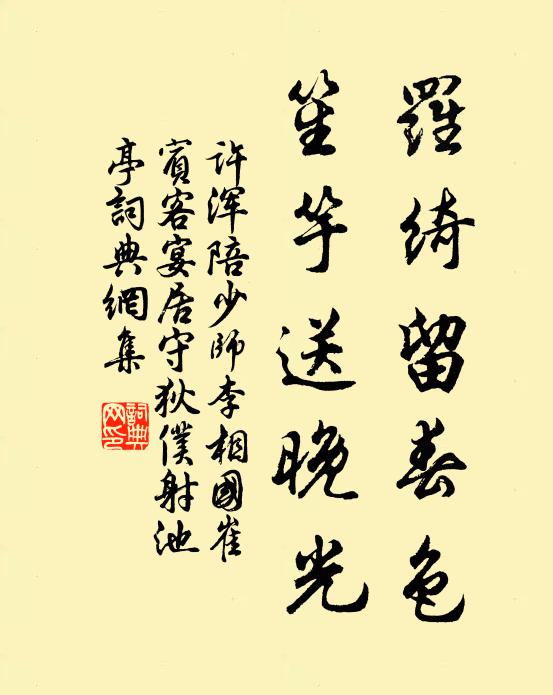 羅綺留春色
笙竽送晚光
许浑陪少師李相國崔
賓客宴居守狄僕射池
亭詞典網集
詞典
网印